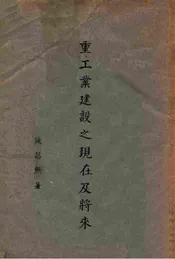 重工業建設之現在及將來
著